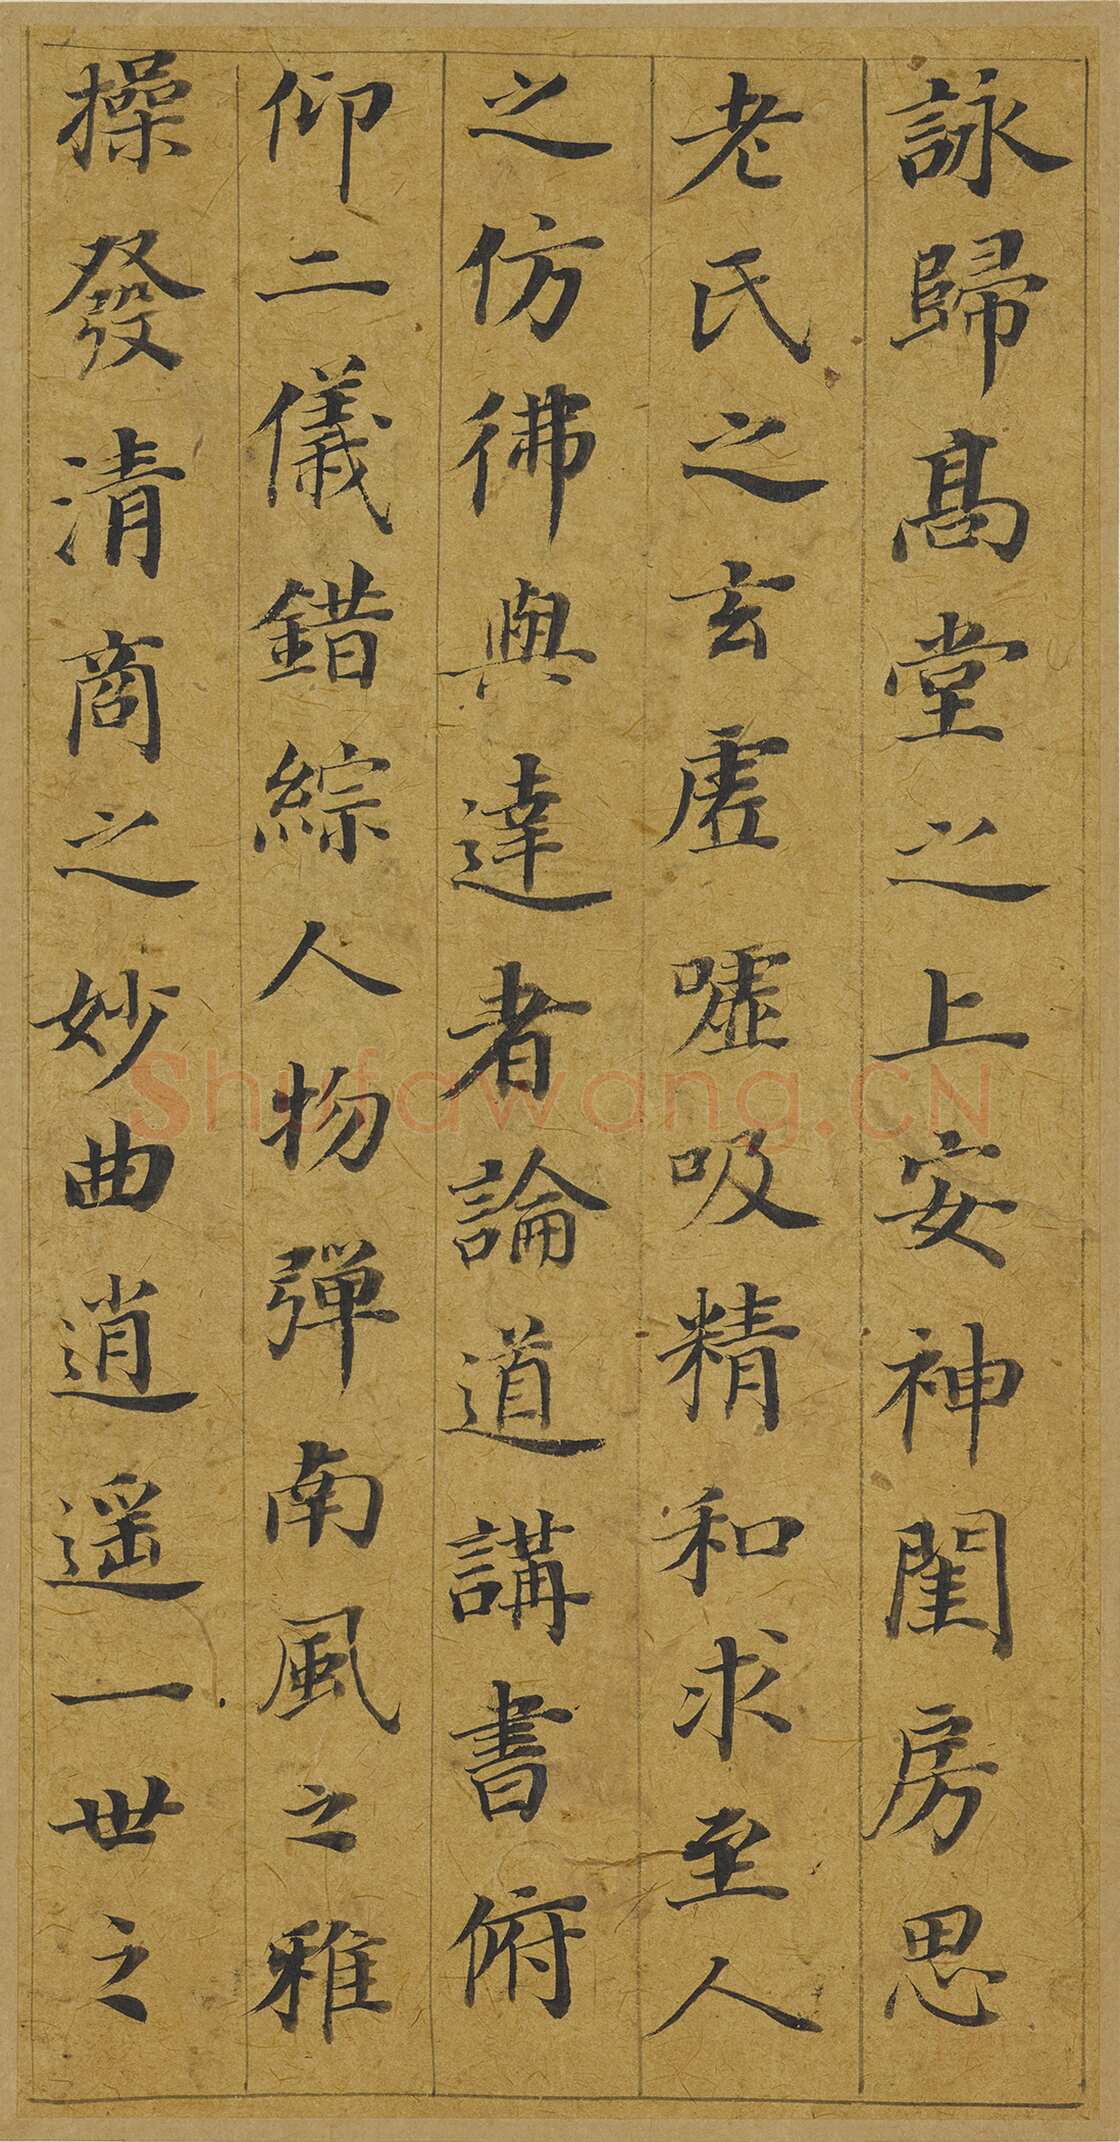 詠歸髙堂之上安神閨房思
老氏之玄虛噓吸精和求至人
之仿彿與達者論道講書俯
仰二儀錯綜人物彈南風之雅
操發清商之妙曲逍遥一世之
Shufawang.CN